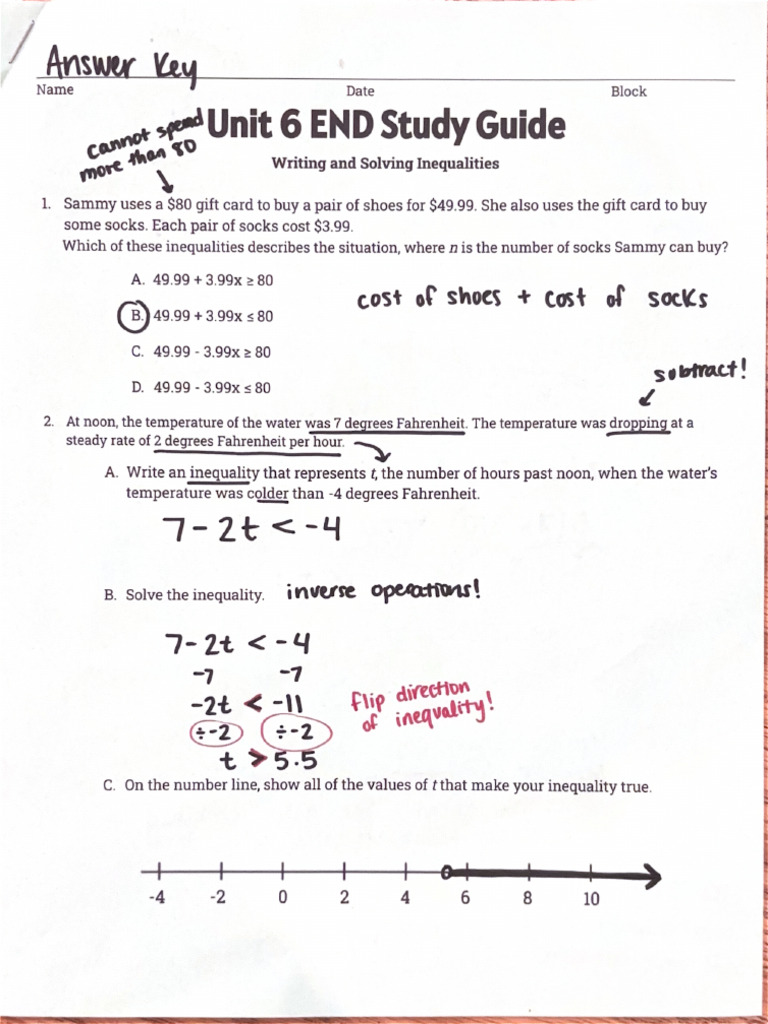 Answer Key
Name Date Block
Unit 6 END Study Guide
cannot spend
more than 80
Writing and Solving Inequalities
1. Sammy uses a $80 gift card to buy a pair of shoes for $49.99. She also uses the gift card to buy
some socks. Each pair of socks cost $3.99.
Which of these inequalities describes the situation, where n is the number of socks Sammy can buy?
A. 49.99 + 3.99x ≥ 80
cost of shoes + cost of socks
B. 49.99 + 3.99x ≤ 80
C. 49.99 - 3.99x ≥ 80
D. 49.99 - 3.99x ≤ 80
subtract!
2. At noon, the temperature of the water was 7 degrees Fahrenheit. The temperature was dropping at a
steady rate of 2 degrees Fahrenheit per hour.
A. Write an inequality that represents t, the number of hours past noon, when the water's
temperature was colder than -4 degrees Fahrenheit.
7 - 2t < -4
B. Solve the inequality. inverse operations!
7 - 2t < -4
-7 -7
-2t < -11
÷-2 ÷-2
flip direction
of inequality!
t > 5.5
C. On the number line, show all of the values of t that make your inequality true.
-4 -2 0 2 4 6 8 10